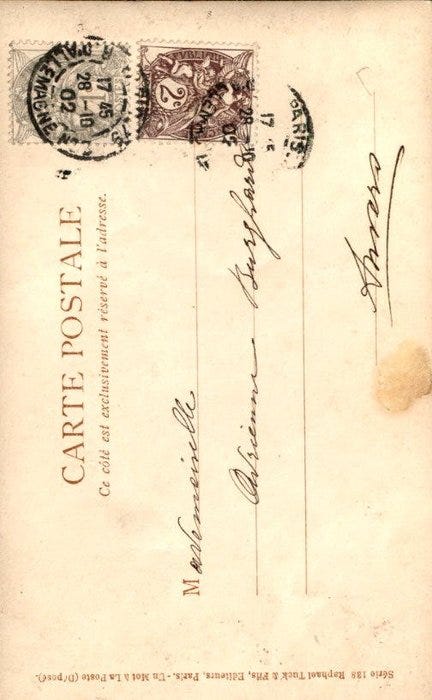 CARTE POSTALE
Ce côté est exclusivement réservé à l'adresse.
2c
PARIS
17 45
28 - 10
02
ALLEMAGNE
PARIS
17
28 10
02
Mademoiselle
Adrienne Burghard
Anvers
Série 138 Raphael Tuck & Fils, Editeurs, Paris. - Un Mot à La Poste (Déposé).